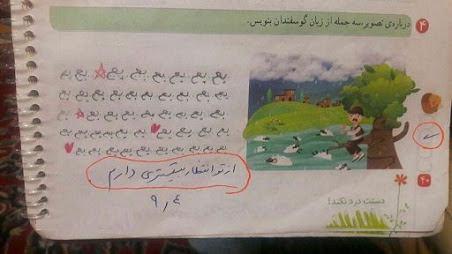 ۴ درباره‌ی تصویر، سه جمله از زبان گوسفندان بنویس.
بع بع بع بع بع بع بع بع بع
بع بع بع بع بع بع بع بع بع بع
بع بع بع بع بع بع بع بع بع بع
بع بع بع بع بع بع بع بع بع بع
بع بع بع بع بع بع بع بع بع بع
از تو انتظار بیشتری دارم
۹٫۴
۴۰
دستت درد نکند!